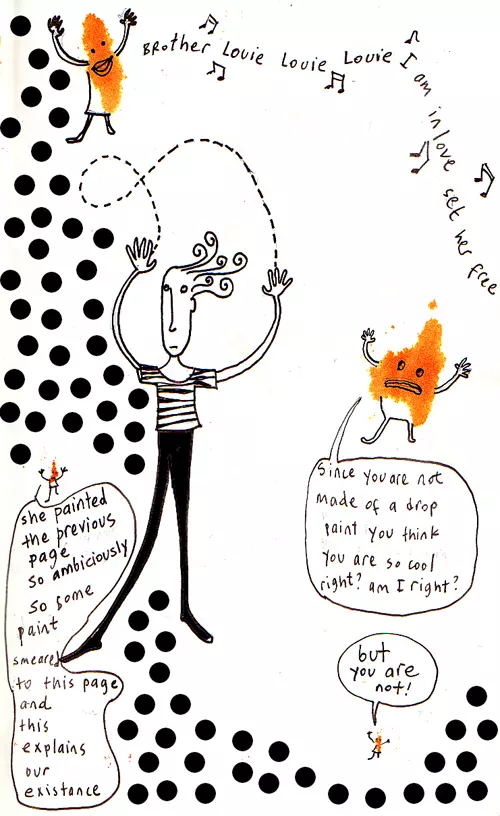 Brother Louie Louie Louie I am in love set her free
Since you are not
made of a drop
paint you think
you are so cool
right? am I right?
she painted
the previous
page
so ambiciously
so some
paint
smeared
to this page
and
this
explains
our
existance
but
you are
not!